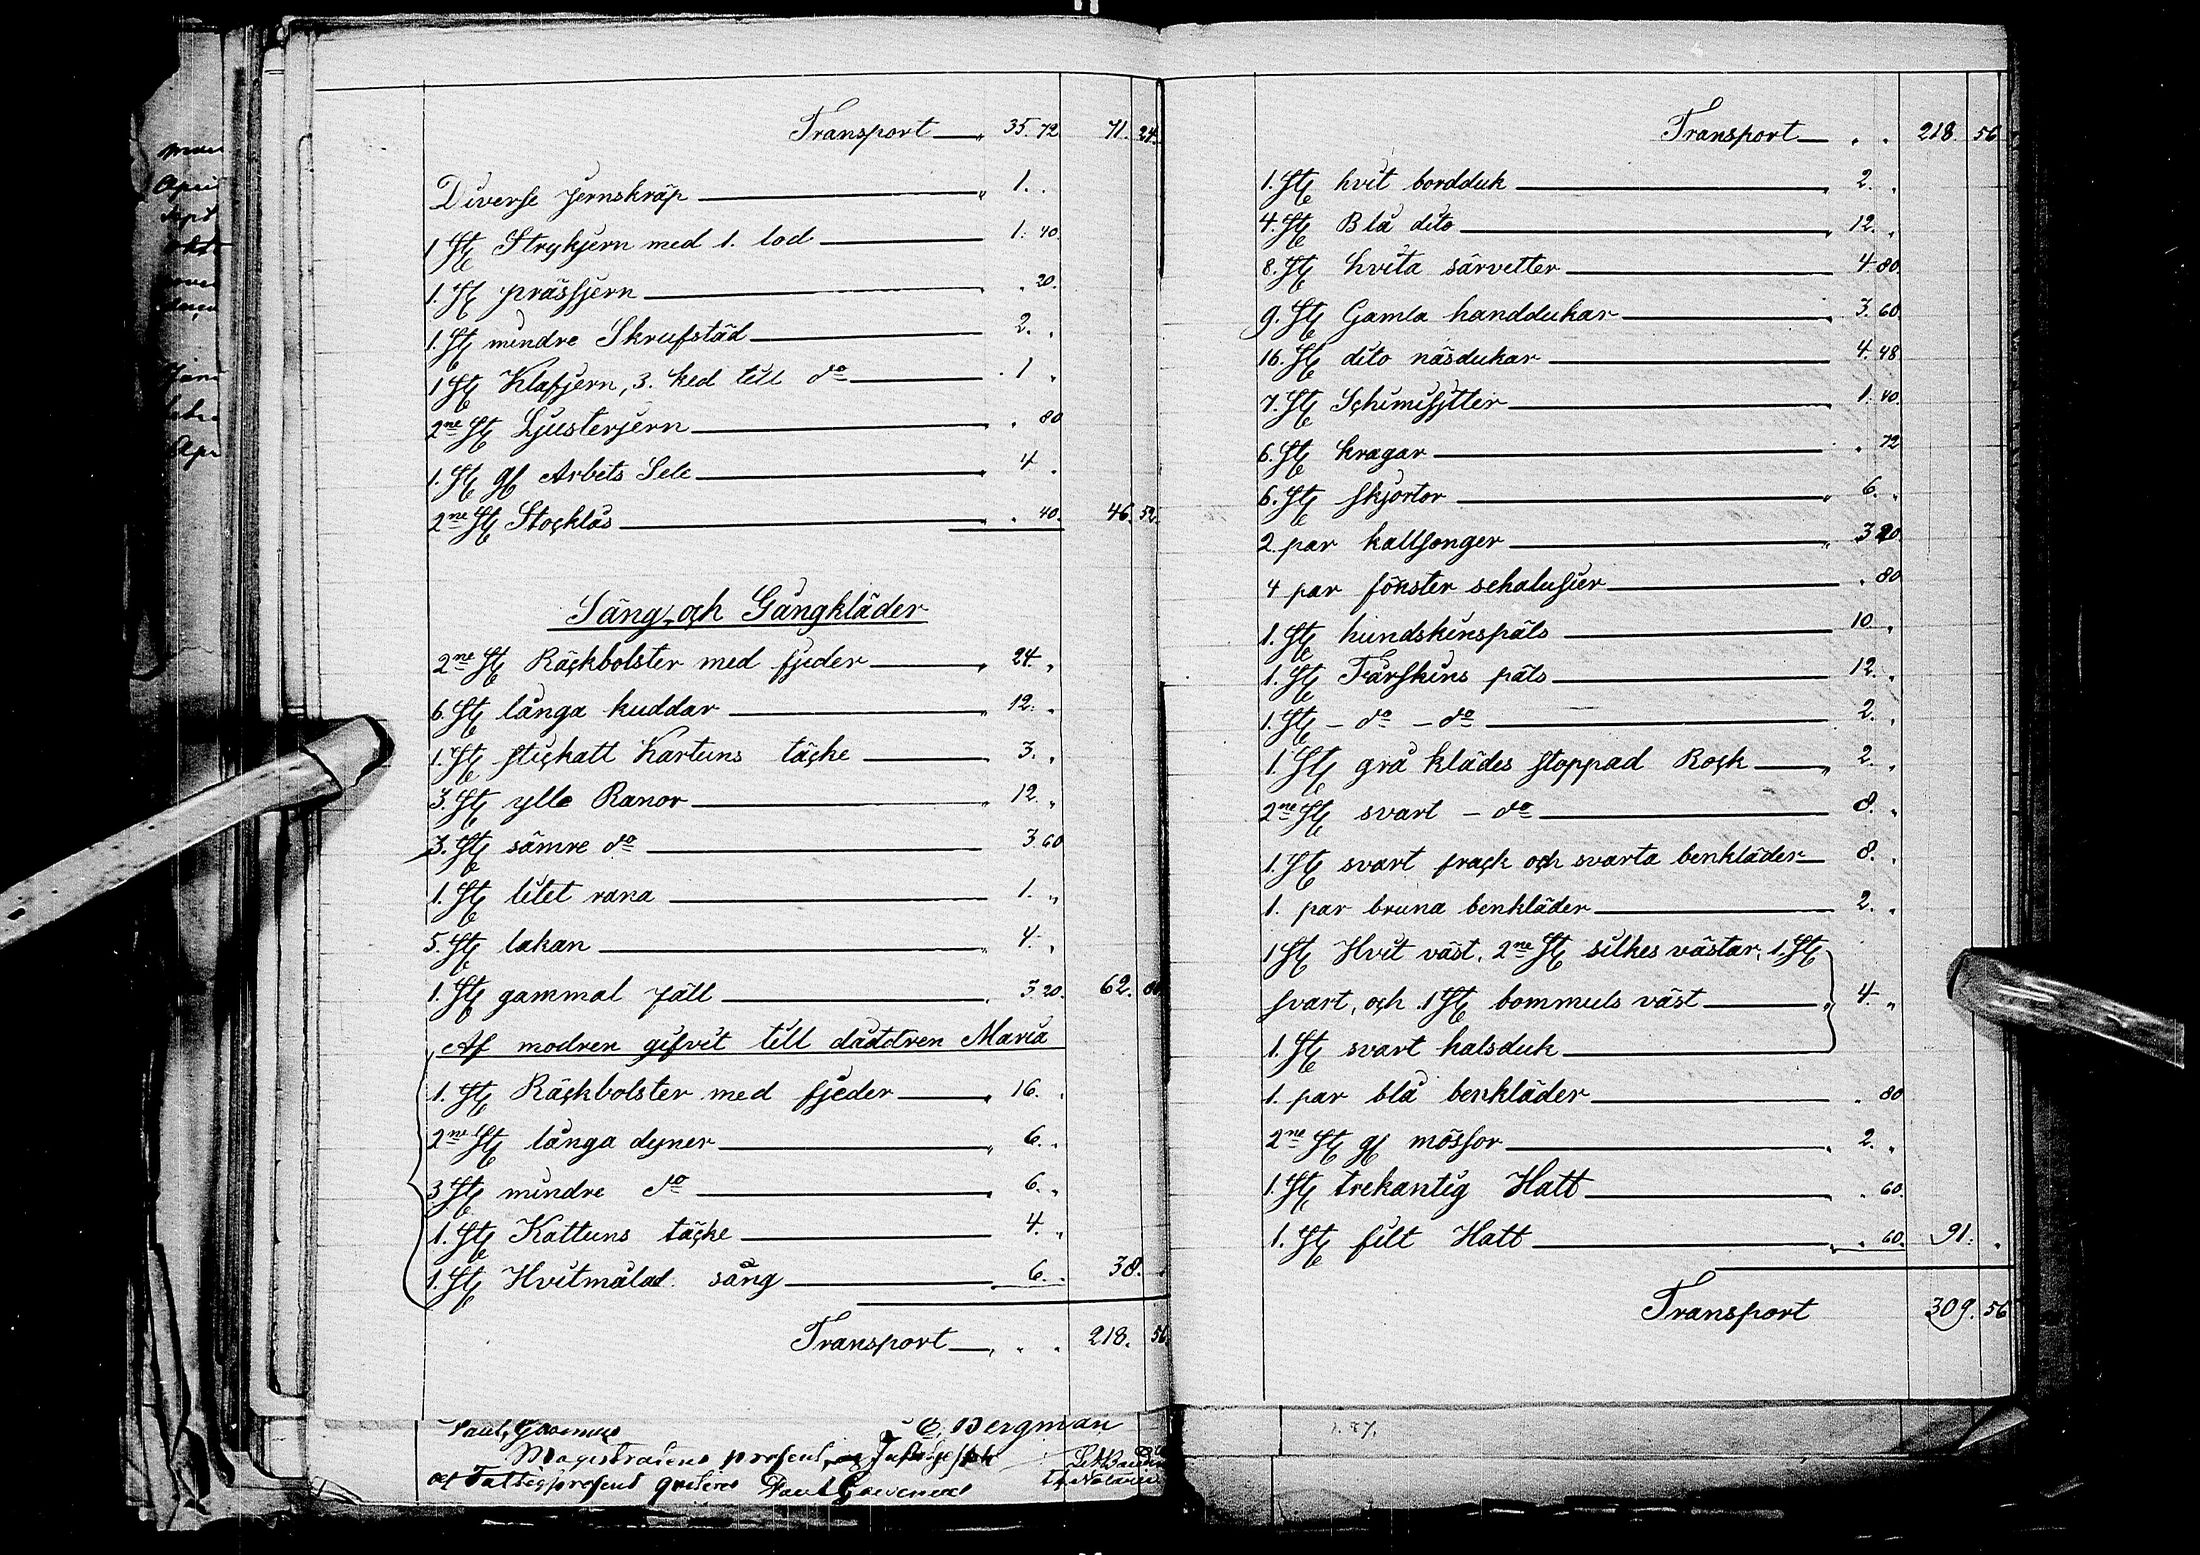 Transport — „ 35. 72 71. 24.
Diverse jernskräp — „ 1. „
1 St Strykjern med 1. lod — 1. 40.
1. St prässjern — „ 20.
1. St mindre Skrufstäd — 2. „
1 St Klafjern, 3. ked till do — 1 „
2ne St Ljusterjern — „ 80
1. St gl Arbets Sele — 4 „
2ne St Stocklås — „ 40. 46. 52.
Säng- och Gångkläder
2ne St Räckbolster med fjeder — „ 24. „
6. St långa kuddar — „ 12. „
1. St stickatt Kartuns täcke — 3. „
3. St ylle Ranor — „ 12 „
3. St sämre do — 3 60
1. St litet rana — 1. „
5. St lakan — „ 4. „
1. St gammal fäll — „ 3. 20. 62. 80
Af modren gifvit till dåttren Maria
1. St Räckbolster med fjeder — „ 16. „
2ne St långa dyner — „ 6. „
3 St mindre do — „ 6. „
1. St Kattuns täcke — 4. „
1. St Hvitmålad säng — 6. „ 38. „
Transport — „ „ „ 218. 56.
E. Bergman
Magistratens
Transport — „ „ 218. 56
1. St hvit bordduk — „ 2. „
4. St Blå dito — „ 12. „
8. St hvita särvetter — „ 4. 80.
9. St Gamla handdukar — „ 3. 60.
16. St dito näsdukar — „ 4. 48
7. St Schimisjtter — „ 1. 40.
6. St kragar — „ 72
6. St skjortor — „ 6. „
2. par kallsonger — „ 3 20
4 par fönster schalusier — „ 80
1. St hundskinspäls — 10. „
1. St Fårskins päls — 12. „
1. St – do – do — 2. „
1. St grå klädes stoppad Rock — „ 2. „
2ne St svart – do — 8. „
1. St svart frack och svarta benkläder — 8. „
1. par bruna benkläder — 2. „
1 St Hvit väst, 2ne St silkes västar, 1. St
svart, och 1 St bommuls väst — „ 4. „
1. St svart halsduk —
1. par blå benkläder — „ 80
2ne St gl mössor — „ 2. „
1. St trekantig Hatt — „ 60.
1. St filt Hatt — „ 60. 91. „
Transport 309. 56